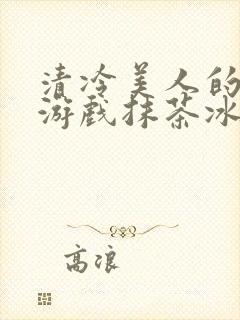 清冷美人的
游戏抹茶冰
高浪